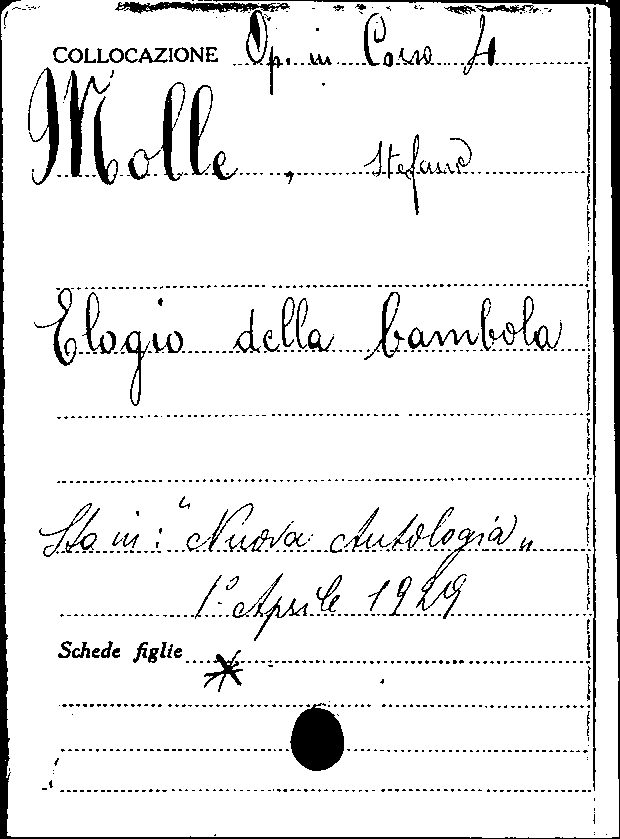 COLLOCAZIONE Op. in Corso 4
Molle, Stefano
Elogio della bambola
Sta in: "Nuova Antologia"
1º Aprile 1929
Schede figlie
*